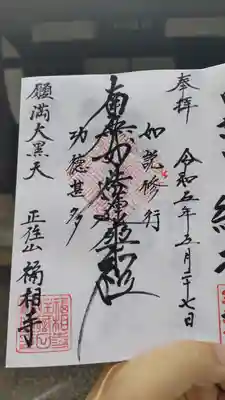 奉拝
令和五年五月二十七日
如説修行
南無妙法蓮華経
功徳甚多
願満大黒天
正住山
福相寺